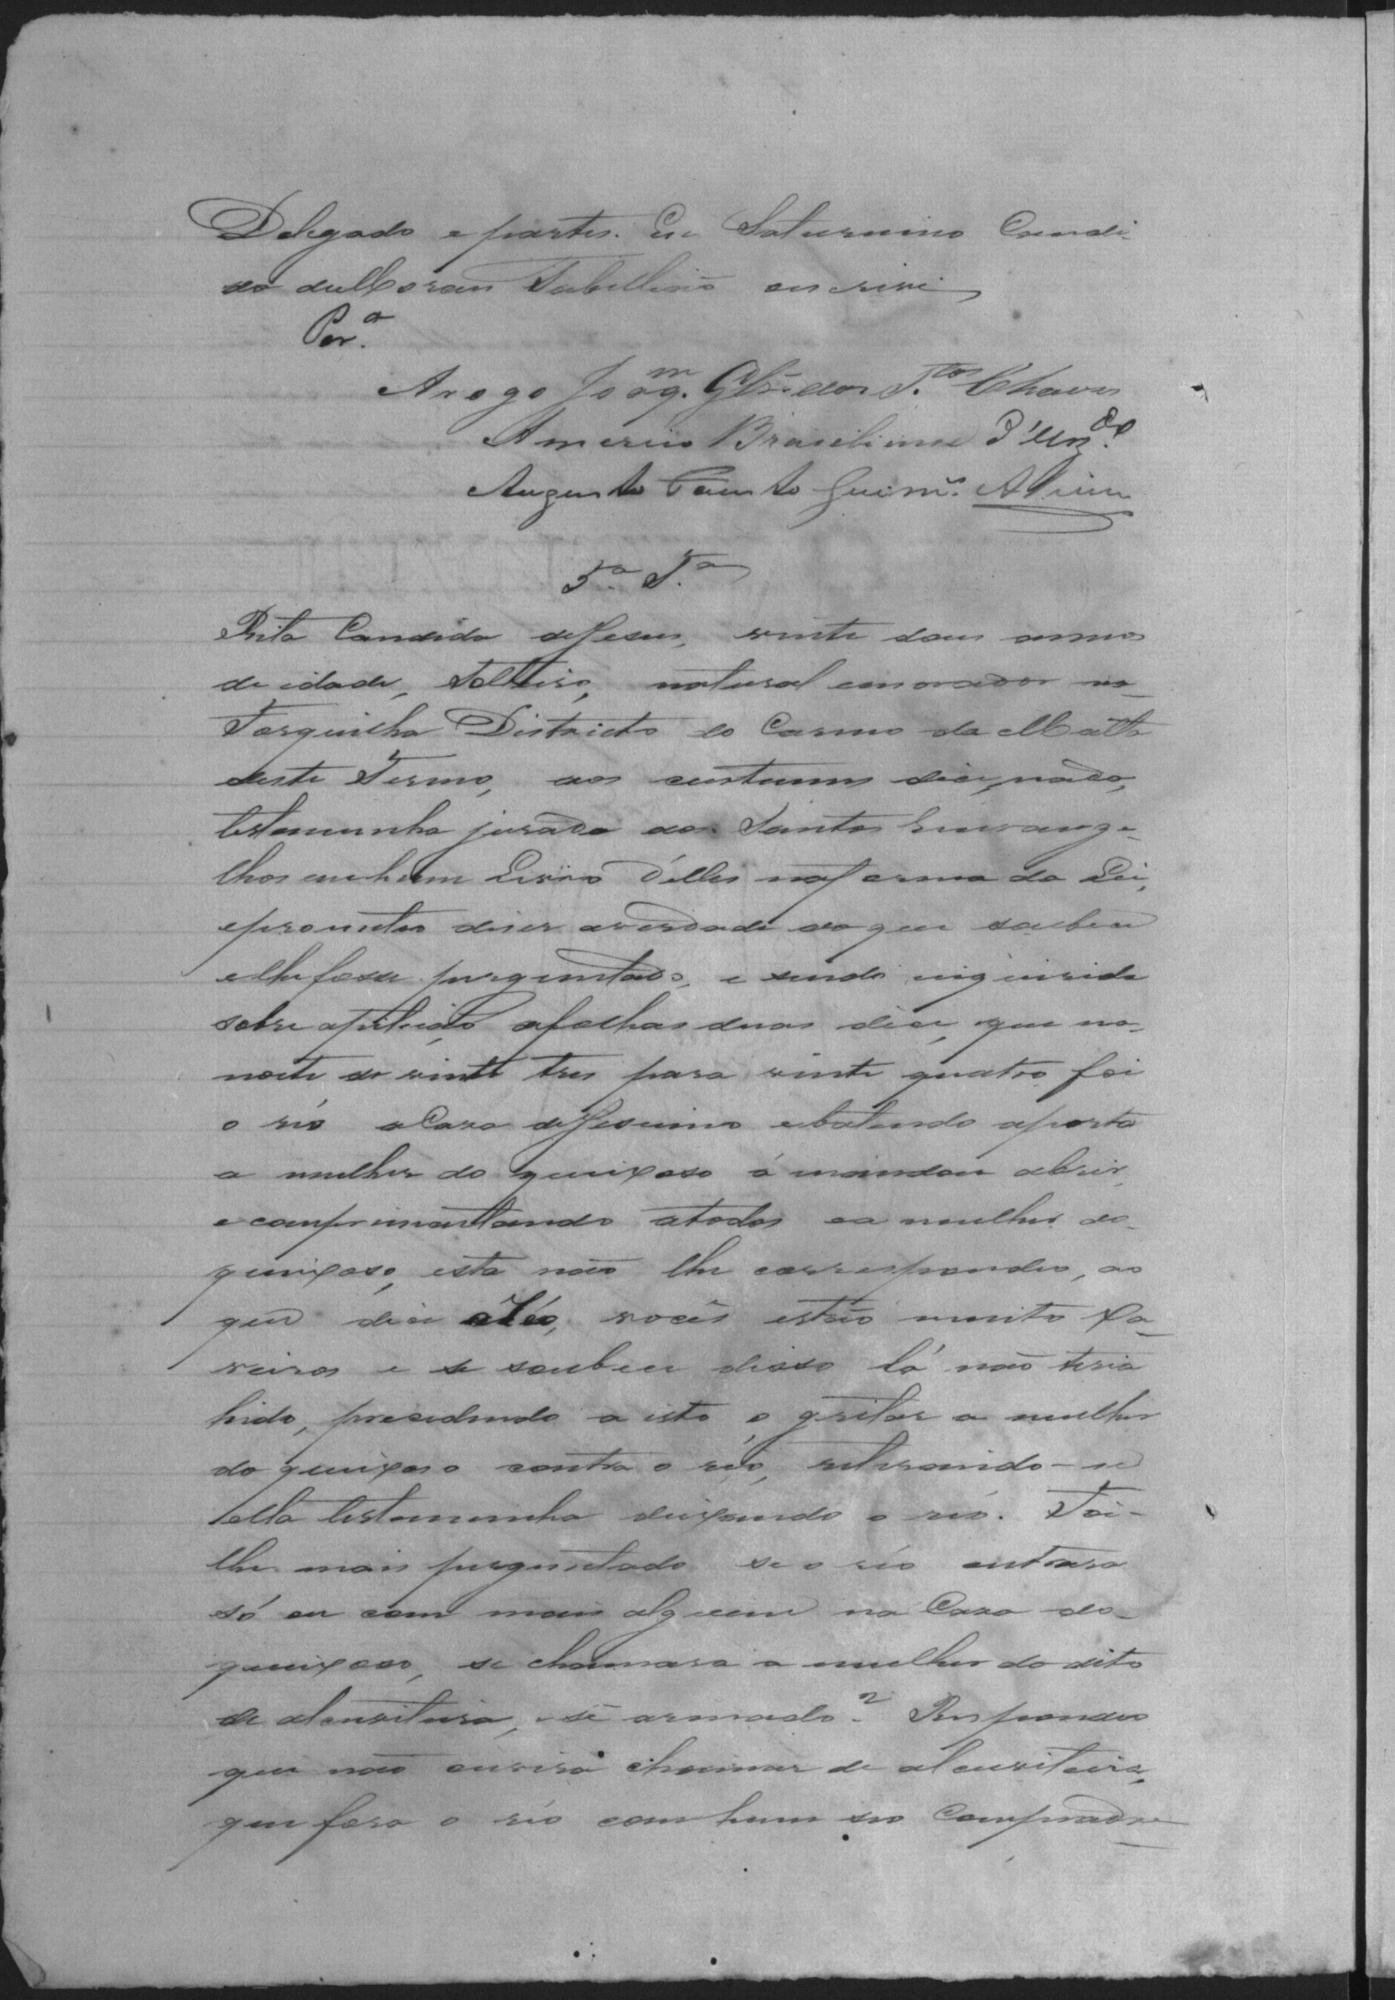 Delegado e partes. Eu Saturnino Candi-
do de Moraes Tabellião escrevi
Per.ª
Arogo Joaq.m dos S.tos Chaves
Americo Brasiliense d'
Augusto Pinto Guim.s
5.ª T.ª
Rita Candida de Jesus, vinte dous annos
de idade, Solteira, natural e morador na
Forquilha Districto do Carmo da Matta
deste Termo, aos custumes dice, nada,
testemunha jurada aos Santos Evange-
lhos em hum Livro d'elles na forma da Lei,
e prometeo dizer a verdade do que soubece
e lhe fosse perguntado, e sendo inquirida
sobre a petição a folhas duas dice, que na
noite de vinte tres para vinte quatro foi
o réo a Casa de Jesuino e batendo a porta
a mulher do queixoso a mandou abrir,
e comprimentando a todos e a mulher do
queixoso, esta não lhe correspondeo, ao
que dice o Réo, vocês estão muito
e se soubece disso lá não teria
hido, precedendo a isto o gritar a mulher
do queixoso contra o réo, retirando-se
ella testemunha deixando o réo. Foi-
lhe mais perguntado se o réo entrara
só ou com mais alguem na Casa do
queixoso, se chamara a mulher do dito
de alcuviteira, e se armado? Respondeo
que não ouvira chamar de alcuviteira,
que fora o réo com hum seo Compadre